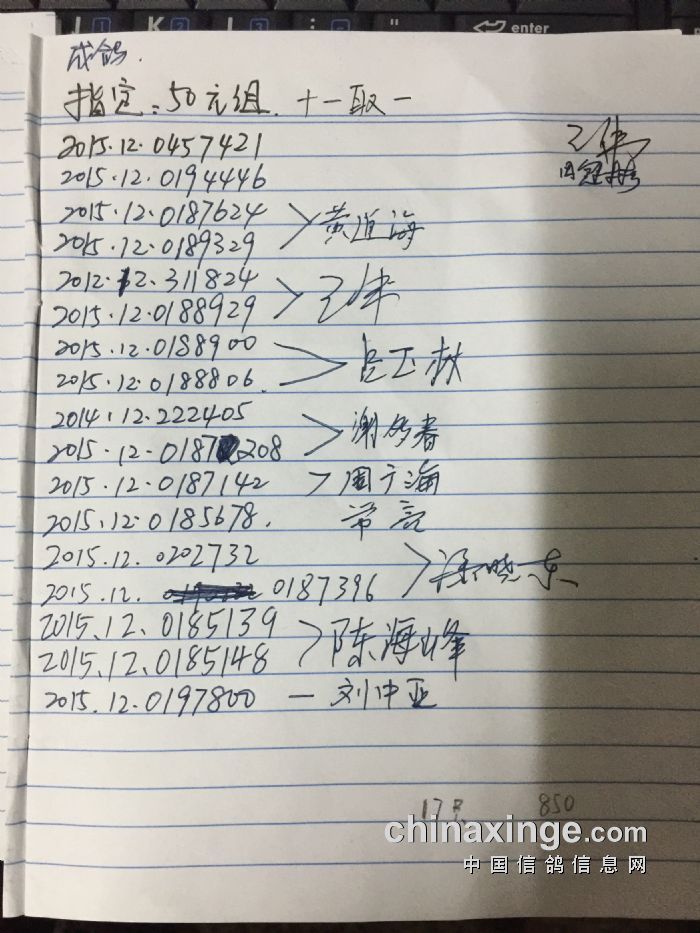 enter
成鸽.
指定:50元组. 十一取一
2015.12.0457421
2015.12.0194446
2015.12.0187624
2015.12.0189329
黄道海
2012.12.311824
2015.12.0188929
2015.12.0188900
2015.12.0188806.
吕玉秋
2014.12.222405
2015.12.0187208
谢多春
2015.12.0187142 周于海
2015.12.0185678. 常亮
2015.12.0202732
2015.12. 0187396
晓东
2015.12.0185139
2015.12.0185148
陈海峰
2015.12.0197800 — 刘中亚
17 850
chinaxinge.com
中国信鸽信息网